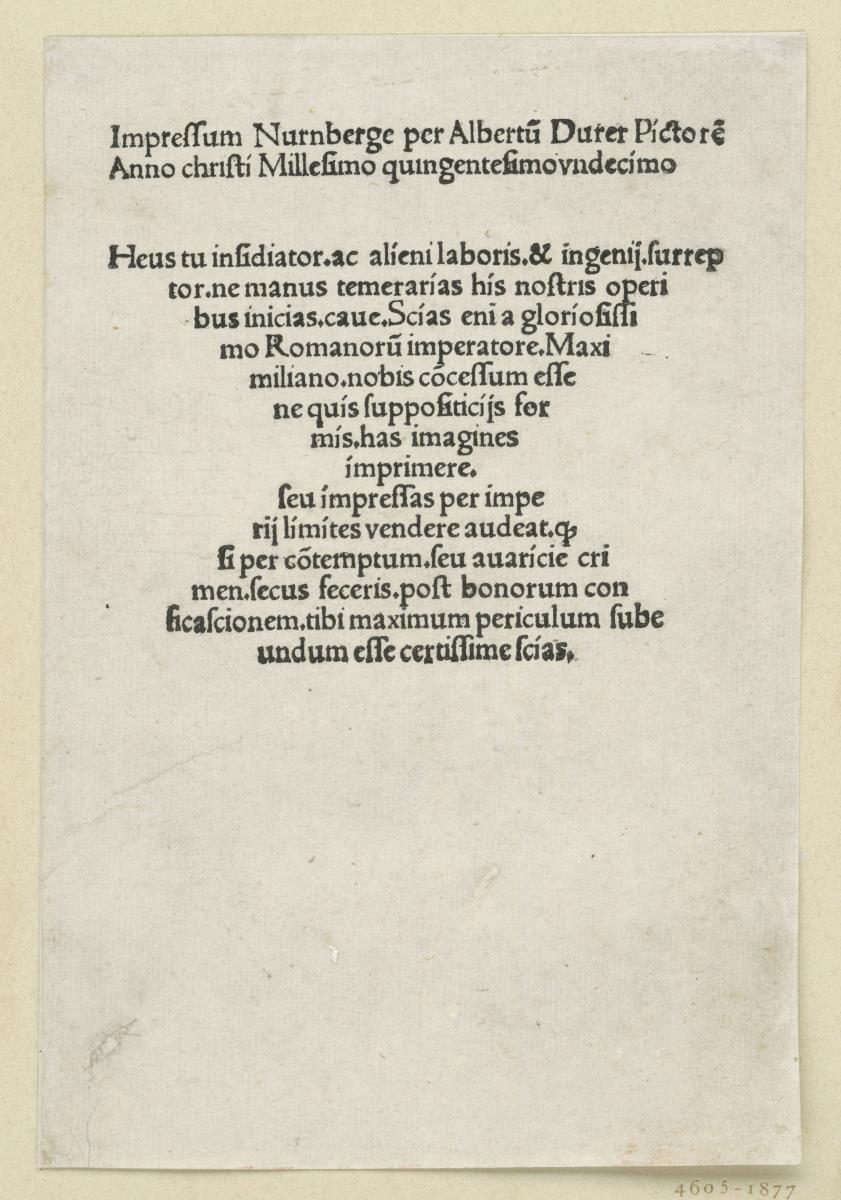 Impreſſum Nurnberge per Albertū Durer Pictorē
Anno chriſti Milleſimo quingenteſimovndecimo
Heus tu inſidiator.ac alieni laboris.& ingenij.ſurrep
tor.ne manus temerarias his noſtris operi
bus inicias.caue.Scias eni a glorioſiſſi
mo Romanorū imperatore.Maxi
miliano.nobis cōceſſum eſſe
ne quis ſuppoſiticijs for
mis.has imagines
imprimere.
ſeu impreſſas per impe
rij limites vendere audeat.ꝙ
ſi per cōtemptum.ſeu auaricie cri
men.ſecus feceris.poſt bonorum con
ficaſcionem.tibi maximum periculum ſube
undum eſſe certiſſime ſcias.
4605-1877